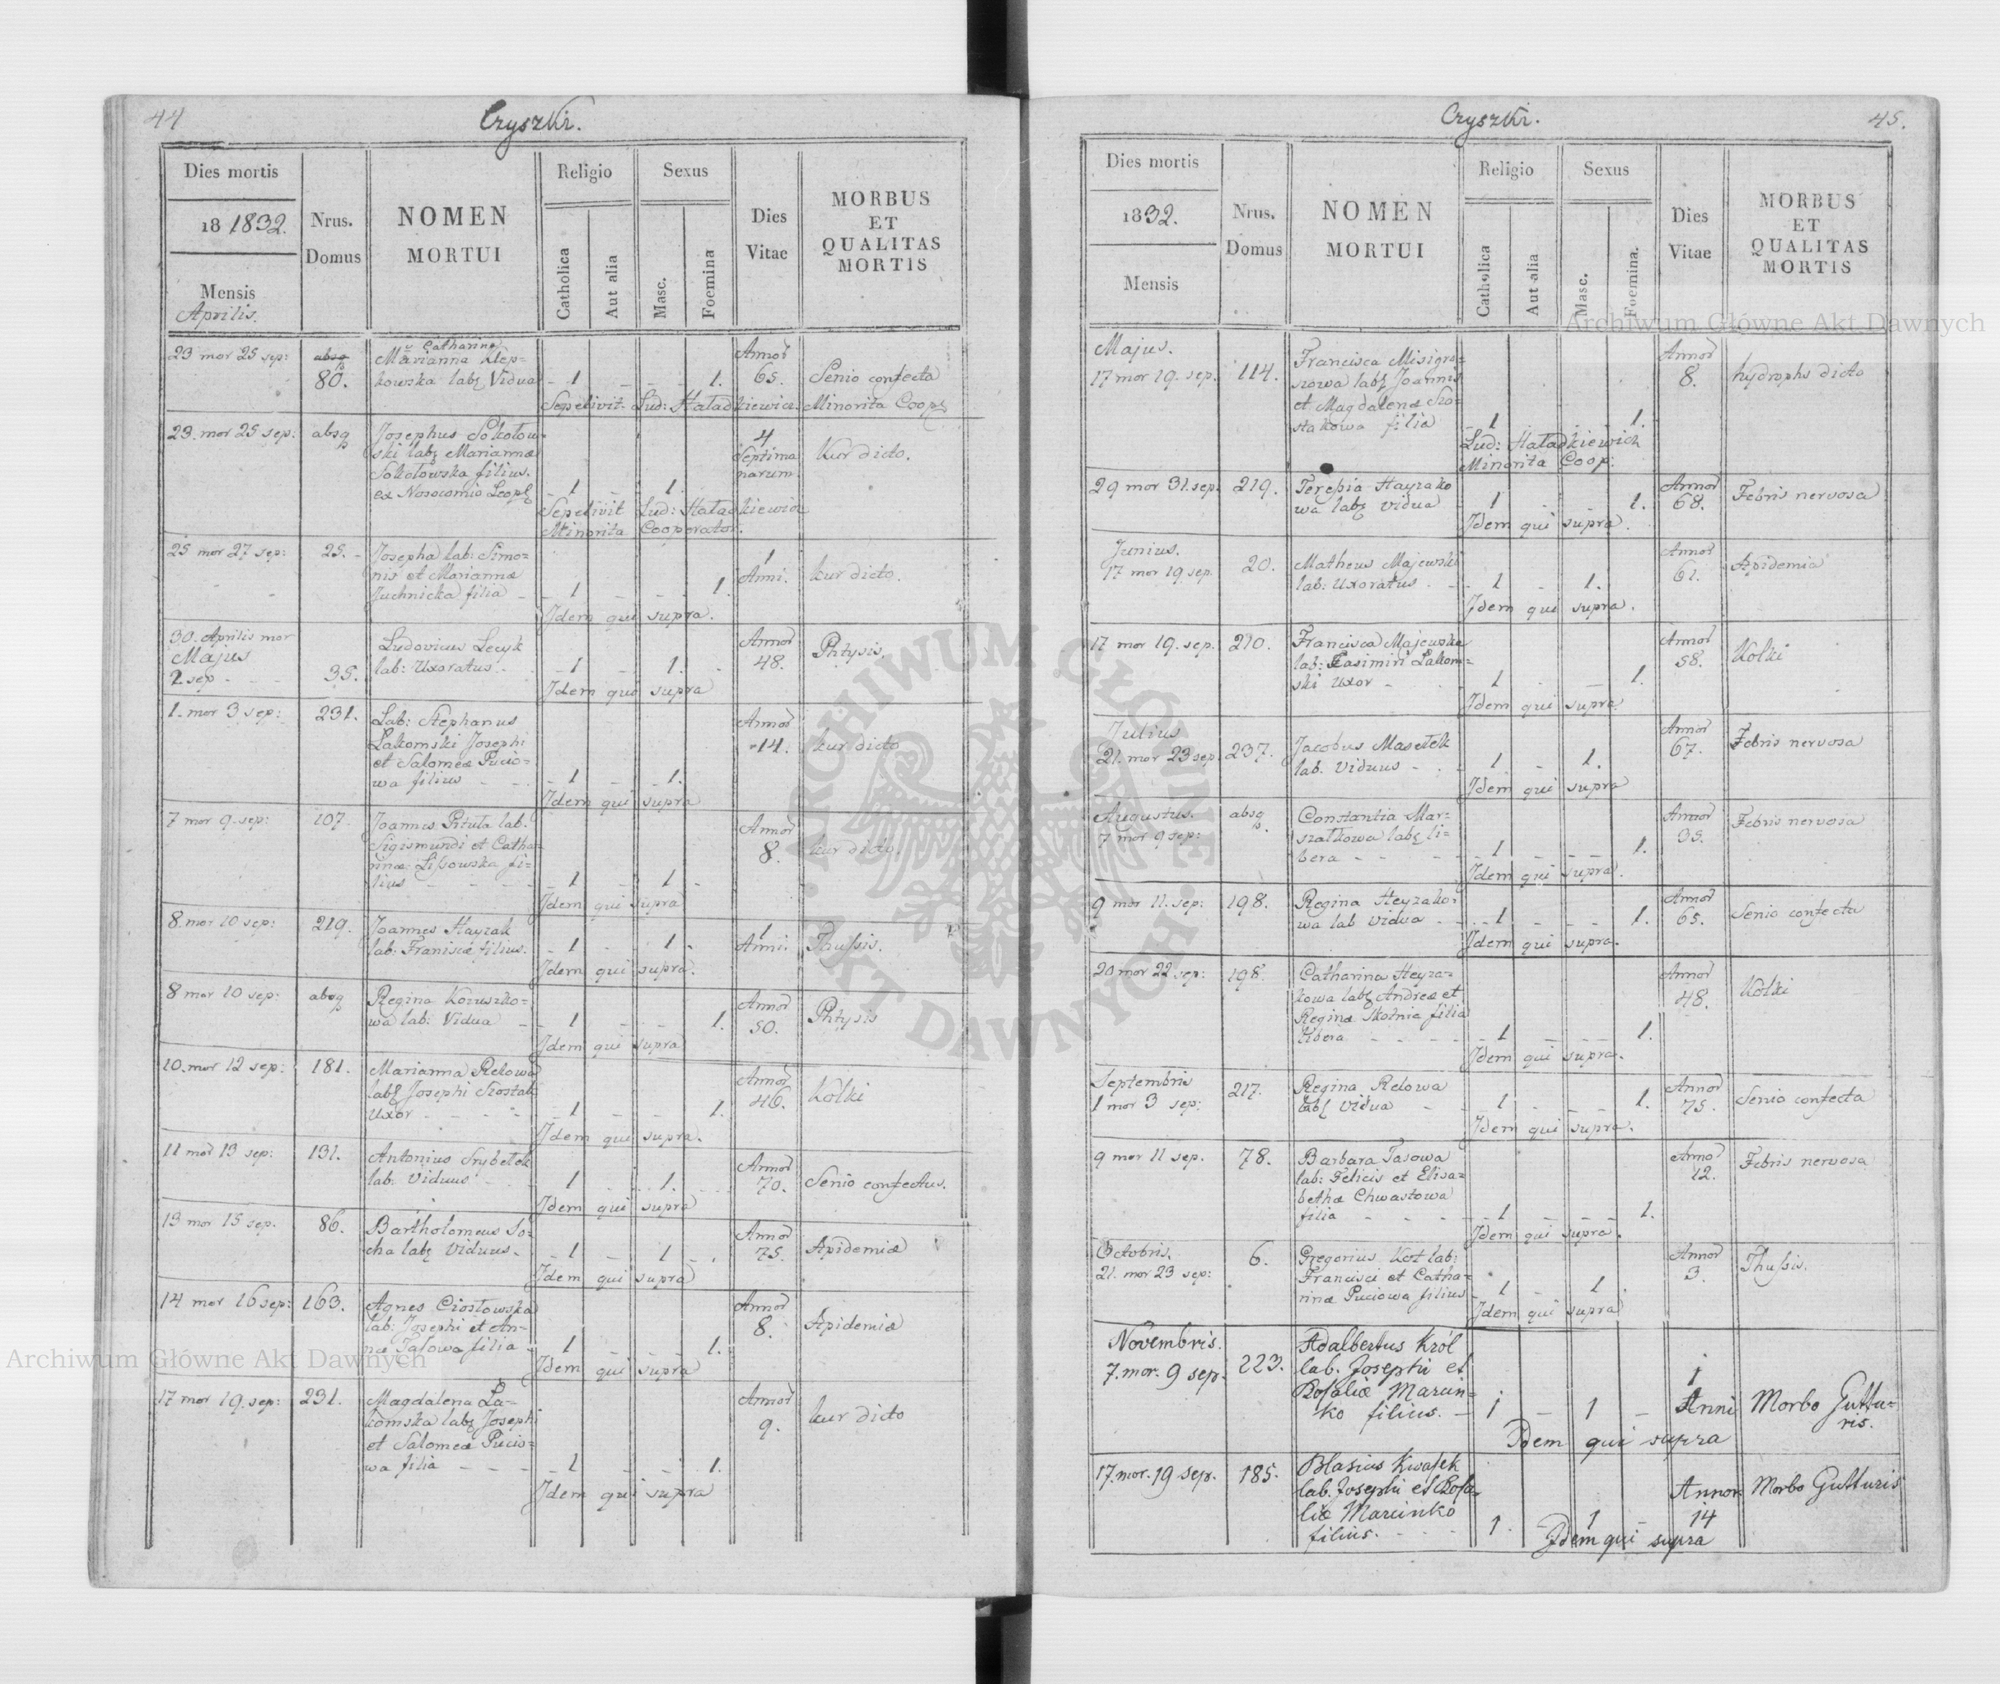 44
Czyszki.
Dies mortis
18 1832.
Mensis
Aprilis.
Nrus.
Domus
NOMEN
MORTUI
Religio
Catholica
Aut alia
Sexus
Masc.
Foemina
Dies
Vitae
MORBUS
ET
QUALITAS
MORTIS
23 mor 25 sep:
80.
Catharina
Marianna
kowska lab Vidua
1
1.
Annor
65.
Senio confecta
Sepelivit Lud: Hatadkiewicz Minorita Coop
23. mor 25 sep:
absq
Josephus Sokołow-
ski lab Mariannæ
Sokołowska filius.
ex Nosocomio Leopl
1
1.
4
Septima
narum
kur dicto.
Sepelivit Lud: Hatadkiewicz
Minorita Cooperator.
25 mor 27 sep:
25.
Josepha lab: Simo-
nis et Mariannæ
Juchnicka filia
1
1.
1
Anni.
kur dicto.
Idem qui supra.
30. Aprilis mor
Majus
2 sep
35.
Ludovicus
lab: Uxoratus
1
1.
Annor
48.
Phtysis.
Idem qui supra
1. mor 3 sep:
231.
Lab: Stephanus
Lakomski Josephi
et Salomeæ Pucio-
wa filius
1
1.
Annor
14.
kur dicto
Idem qui supra
7 mor 9. sep:
107.
Joannes Pituta lab.
Sigismundi et Catha-
rinæ Lissowska fi-
lius
1
1
Annor
8.
kur dicto.
Idem qui supra
8 mor 10 sep:
219.
Joannes Hayzak
lab: Franiscæ filius.
1
1.
1
Anni.
Idem qui supra.
8 mor 10 sep:
absq
Regina Kozuszko-
wa lab: Vidua
1
1.
Annor
50.
Phtysis
Idem qui supra
10. mor 12 sep:
181.
Marianna Rekowa
lab Josephi Szostak
Uxor
1
1.
Annor
46.
Kolki
Idem qui supra.
11 mor 13 sep:
131.
Antonius Srybełek
lab: Viduus
1
1.
Annor
70.
Senio confectus.
Idem qui supra
13 mor 15 sep.
86.
Bartholomeus So-
cha lab Viduus.
1
1
Annor
75.
Apidemiæ
Idem qui supra
14 mor 16 sep:
163.
Agnes Ciostowska
lab: Josephi et An-
næ Tasowa filia
1
1.
Annor
8.
Apidemiæ
Idem qui supra
17 mor 19. sep:
231.
Magdalena La-
komska lab Josephi
et Salomeæ Pucio-
wa filia
1
1.
Annor
9.
kur dicto
Idem qui supra
Czyszki.
45.
Dies mortis
1832.
Mensis
Nrus.
Domus
NOMEN
MORTUI
Religio
Catholica
Aut alia
Sexus
Masc.
Foemina.
Dies
Vitae
MORBUS
ET
QUALITAS
MORTIS
Majus.
17 mor 19. sep.
114.
Francisca Misigro-
szowa lab Joannis
et Magdalenæ Szo-
stakowa filia
1
1.
Annor
8.
hydrops dicto
Lud: Hatadkiewicz
Minorita Coop:
29 mor 31. sep.
219.
Teressia Hayzako
wa lab vidua
1
1.
Annor
68.
Febris nervosa
Idem qui supra.
Junius.
17 mor 19 sep.
20.
Matheus Majewski
lab: Uxoratus
1
1.
Annor
61.
Apidemia
Idem qui supra.
17 mor 19. sep.
210.
Francisca Majewska
lab: Casimiri Lakom-
ski Uxor
1
1.
Annor
58.
Kolki
Idem qui supra
Julius
21. mor 23 sep
237.
Jacobus Masełek
lab. Viduus
1
1.
Annor
67.
Febris nervosa
Idem qui supra
Augustus.
7 mor 9 sep:
absq
Constantia Mar-
szałkowa lab li-
bera
1
1.
Annor
35.
Febris nervosa
Idem qui supra.
9 mor 11. sep:
198.
Regina Heyzako-
wa lab Vidua
1
1.
Annor
65.
Senio confecta
Idem qui supra.
20 mor 22 sep:
198
Catharina Heyza-
kowa lab Andreæ et
Reginæ Skotnia filia
libera
1
1.
Annor
48.
Kolki
Idem qui supra.
Septembris
1 mor 3 sep:
217.
Regina Relowa
lab Vidua
1
1.
Annor
75.
Senio confecta
Idem qui supra.
9 mor 11 sep.
78.
Barbara Tasowa
lab: Felicis et Elisa-
bethæ Chwastowa
filia
1
1.
Anno
12.
Febris nervosa
Idem qui supra.
Octobris.
21. mor 23 sep:
6.
Gregorius Kot lab:
Francisci et Catha-
rinæ Puciowa filius
1
1
Annor
3.
Thussis.
Idem qui supra
Novembris.
7. mor. 9 sep.
223.
Adalbertus Król
lab. Josephi et
Rosaliæ Marcin-
ko filius.
1
1
1
Anni
Morbo Guttu-
ris.
Idem qui supra
17. mor. 19 sep.
185.
Blasius Kwasek
lab. Josephi et Rosa-
liæ Marcinko
filius.
1.
1
Annor
14
Morbo Gutturis
Idem qui supra
Archiwum Główne Akt Dawnych
Archiwum Główne Akt Dawnych
ARCHIWUM GŁÓWNE AKT DAWNYCH